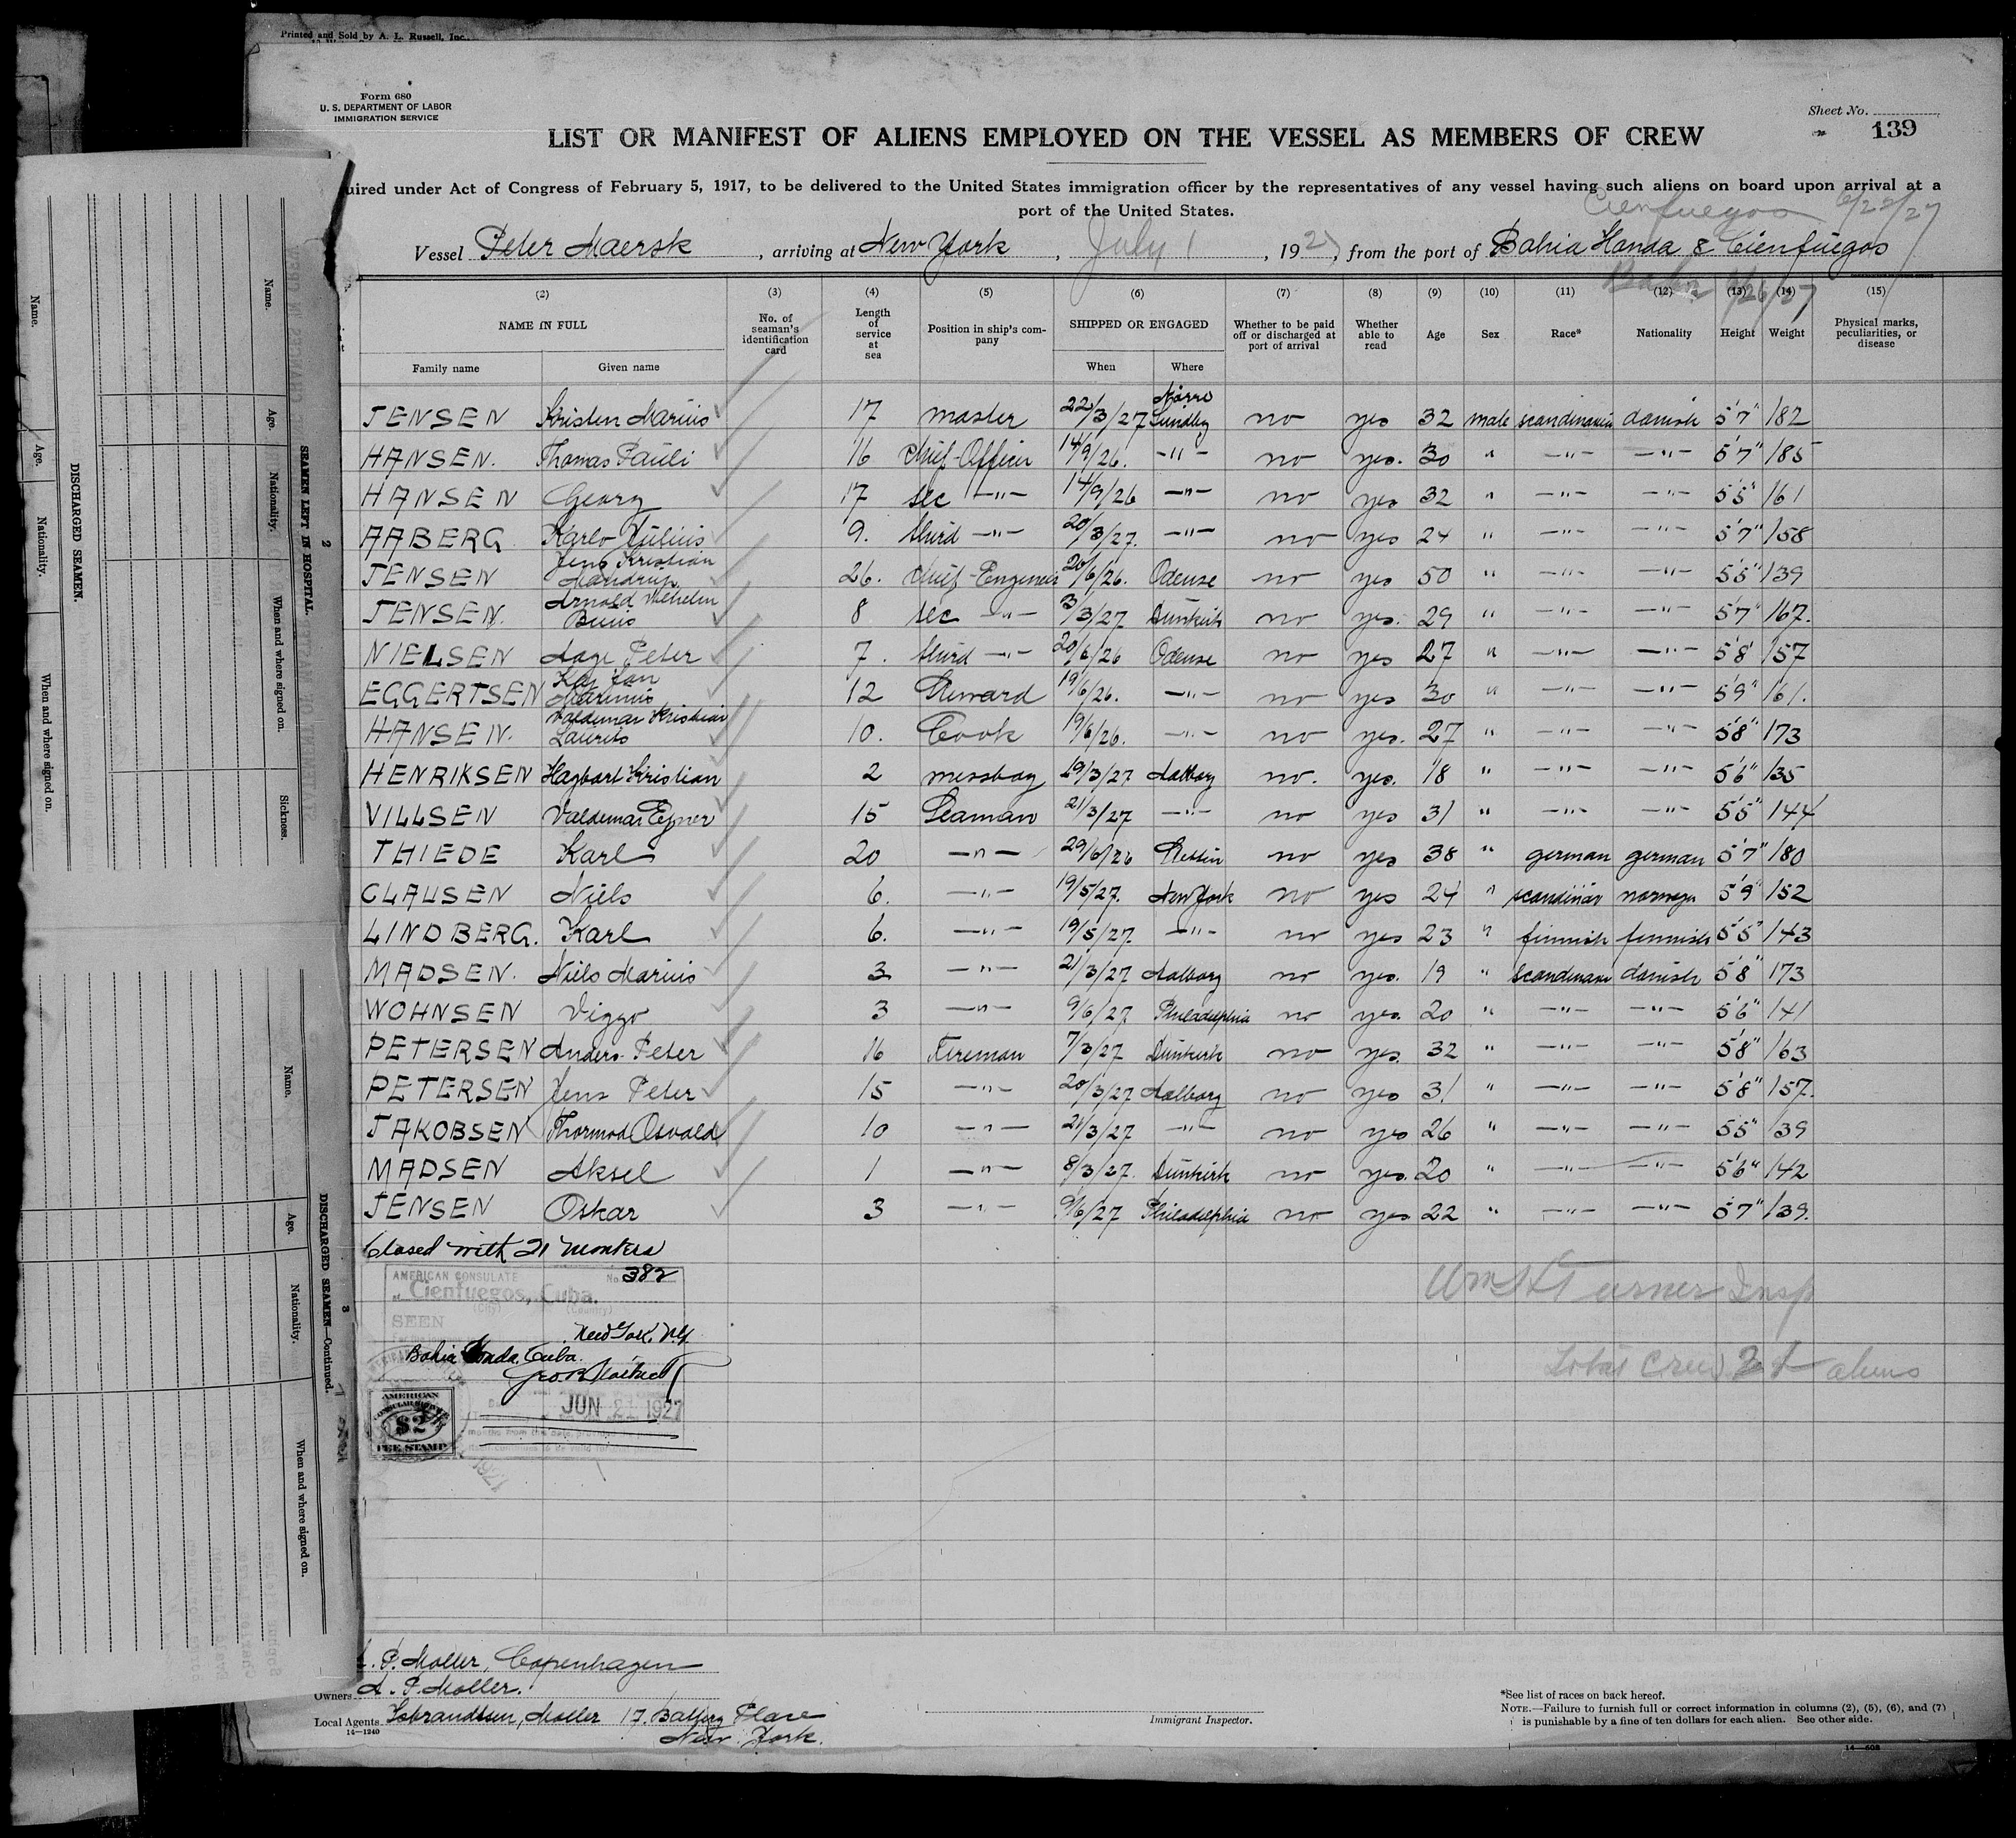 Printed and Sold by A. L. Russell, Inc.
Form 680
U. S. DEPARTMENT OF LABOR
IMMIGRATION SERVICE
Sheet No.
139
LIST OR MANIFEST OF ALIENS EMPLOYED ON THE VESSEL AS MEMBERS OF CREW
uired under Act of Congress of February 5, 1917, to be delivered to the United States immigration officer by the representatives of any vessel having such aliens on board upon arrival at a
port of the United States.
Cienfuegos 6/22/27
Vessel Peter Maersk, arriving at New York, July 1, 1927, from the port of Bahia Honda & Cienfuegos
6/26/27
(2) (3) (4) (5) (6) (7) (8) (9) (10) (11) (12) (13) (14) (15)
NAME IN FULL No. of seaman's identification card Length of service at sea Position in ship's company SHIPPED OR ENGAGED Whether to be paid off or discharged at port of arrival Whether able to read Age Sex Race* Nationality Height Weight Physical marks, peculiarities, or disease
Family name Given name When Where
JENSEN Kristen Marius 17 master 22/3/27 Nørre Sundby no yes 32 male scandinavia danish 5'7" 182
HANSEN. Thomas Pauli 16 Chief-Officer 14/9/26. -"- no yes. 30 " -"- -"- 5'7" 185
HANSEN Georg 17 sec -"- 14/9/26 -"- no yes 32 " -"- -"- 5'5" 161
AABERG Karlo Julius 9. third -"- 20/3/27. -"- no yes 24 " -"- -"- 5'7" 158
JENSEN Jens Kristian Mandrup 26. Chief-Engineer 20/6/26. Odense no yes 50 " -"- -"- 5'5" 139
JENSEN. Arnold Vilhelm Buus 8 sec -"- 3/3/27 Dunkirk no yes. 29 " -"- -"- 5'7" 167.
NIELSEN Aage Peter 7. third -"- 20/6/26 Odense no yes 27 " -"- -"- 5'8 157
EGGERTSEN Kaj Jon Marinus 12 Steward 19/6/26. -"- no yes 30 " -"- -"- 5'9" 161.
HANSEN. Valdemar Kristian Laurits 10. Cook 19/6/26. -"- no yes. 27 " -"- -"- 5'8" 173
HENRIKSEN Hagbart Kristian 2 messboy 19/3/27 Aalborg no. yes. 18 " -"- -"- 5'6" 135
VILLSEN Valdemar Ejner 15 Seaman 21/3/27 -"- no yes 31 " -"- -"- 5'5" 144
THIEDE Karl 20 -"- 29/6/26 Stettin no yes 38 " german german 5'7" 180
CLAUSEN Niels 6. -"- 19/5/27. New York no yes 24 " scandinav norwegn 5'9" 152
LINDBERG. Karl 6. -"- 19/5/27. -"- no yes 23 " finnish finnish 5'5" 143
MADSEN. Niels Marius 3 -"- 21/3/27 Aalborg no yes. 19 " scandinavi danish 5'8" 173
WOHNSEN Viggo 3 -"- 9/6/27 Philadelphia no yes. 20 " -"- -"- 5'6" 141
PETERSEN Anders Peter 16 Fireman 7/3/27 Dunkirk no yes. 32 " -"- -"- 5'8" 163
PETERSEN Jens Peter 15 -"- 20/3/27 Aalborg no yes 31 " -"- -"- 5'8" 157.
JAKOBSEN Thormod Osvald 10 -"- 21/3/27 -"- no yes 26 " -"- -"- 5'5" 139
MADSEN Aksel 1 -"- 8/3/27. Dunkirk no yes. 20 " -"- -"- 5'6" 142
JENSEN Oskar 3 -"- 9/6/27 Philadelphia no yes 22 " -"- -"- 5'7" 139.
Closed with 21 members
AMERICAN CONSULATE No. 382
Cienfuegos, Cuba.
(City) (Country)
SEEN
New York, N.Y.
Bahia Honda, Cuba.
JUN 21 1927
AMERICAN
CONSULAR SERVICE
$2
FEE STAMP
1927
Wm H Turner Insp
Total Crew 21 aliens
. P. Moller, Copenhagen
Owners A. P. Moller.
Local Agents Isbrandtsen, Moller 17. Battery Place
New York.
14-1240
Immigrant Inspector.
*See list of races on back hereof.
NOTE.—Failure to furnish full or correct information in columns (2), (5), (6), and (7)
is punishable by a fine of ten dollars for each alien. See other side.
14-608
SEAMEN LEFT IN HOSPITAL.
2
Name. Age. Nationality. When and where signed on. Sickness.
DISCHARGED SEAMEN.
Name. Age. Nationality. When and where signed on.
DISCHARGED SEAMEN—Continued.
3
Name. Age. Nationality. When and where signed on.